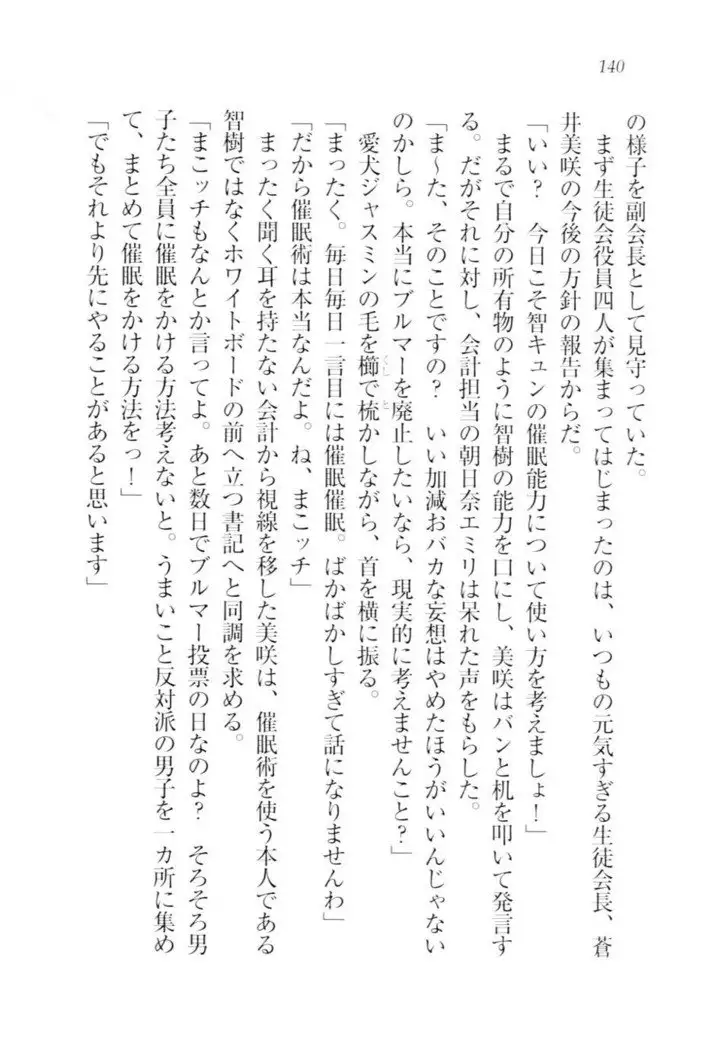 140
の様子を副会長として見守っていた。
　まず生徒会役員四人が集まってはじまったのは、いつもの元気すぎる生徒会長、蒼
井美咲の今後の方針の報告からだ。
「いい？　今日こそ智キュンの催眠能力について使い方を考えましょ！」
　まるで自分の所有物のように智樹の能力を口にし、美咲はバンと机を叩いて発言す
る。だがそれに対し、会計担当の朝日奈エミリは呆れた声をもらした。
「ま～た、そのことですの？　いい加減おバカな妄想はやめたほうがいいんじゃない
のかしら。本当にブルマーを廃止したいなら、現実的に考えませんこと？」
　愛犬ジャスミンの毛を櫛で梳かしながら、首を横に振る。
「まったく。毎日毎日一言目には催眠催眠。ばかばかしすぎて話になりませんわ」
「だから催眠術は本当なんだよ。ね、まこッチ」
　まったく聞く耳を持たない会計から視線を移した美咲は、催眠術を使う本人である
智樹ではなくホワイトボードの前へ立つ書記へと同調を求める。
「まこッチもなんとか言ってよ。あと数日でブルマー投票の日なのよ？　そろそろ男
子たち全員に催眠をかける方法考えないと。うまいこと反対派の男子を一カ所に集め
て、まとめて催眠をかける方法をっ！」
「でもそれより先にやることがあると思います」